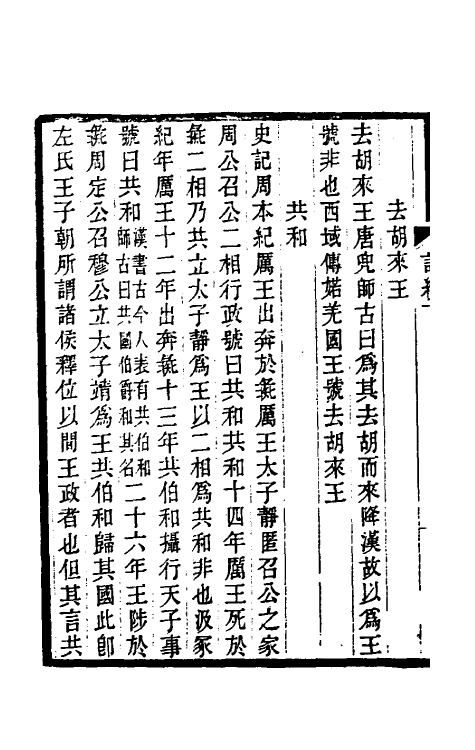 去胡來王
去胡來王唐兜師古曰爲其去胡而來降漢故以爲王
號非也西域傳婼羌國王號去胡來王
共和
史記周本紀厲王出奔於彘厲王太子靜匿召公之家
周公召公二相行政號曰共和共和十四年厲王死於
彘二相乃共立太子靜爲王以二相爲共和非也汲冢
紀年厲王十二年出奔彘十三年共伯和攝行天子事
號曰共和漢書古今人表有共伯和師古曰共國伯爵和其名二十六年王陟於
彘周定公召穆公立太子靖爲王共伯和歸其國此卽
左氏王子朝所謂諸侯釋位以間王政者也但其言共